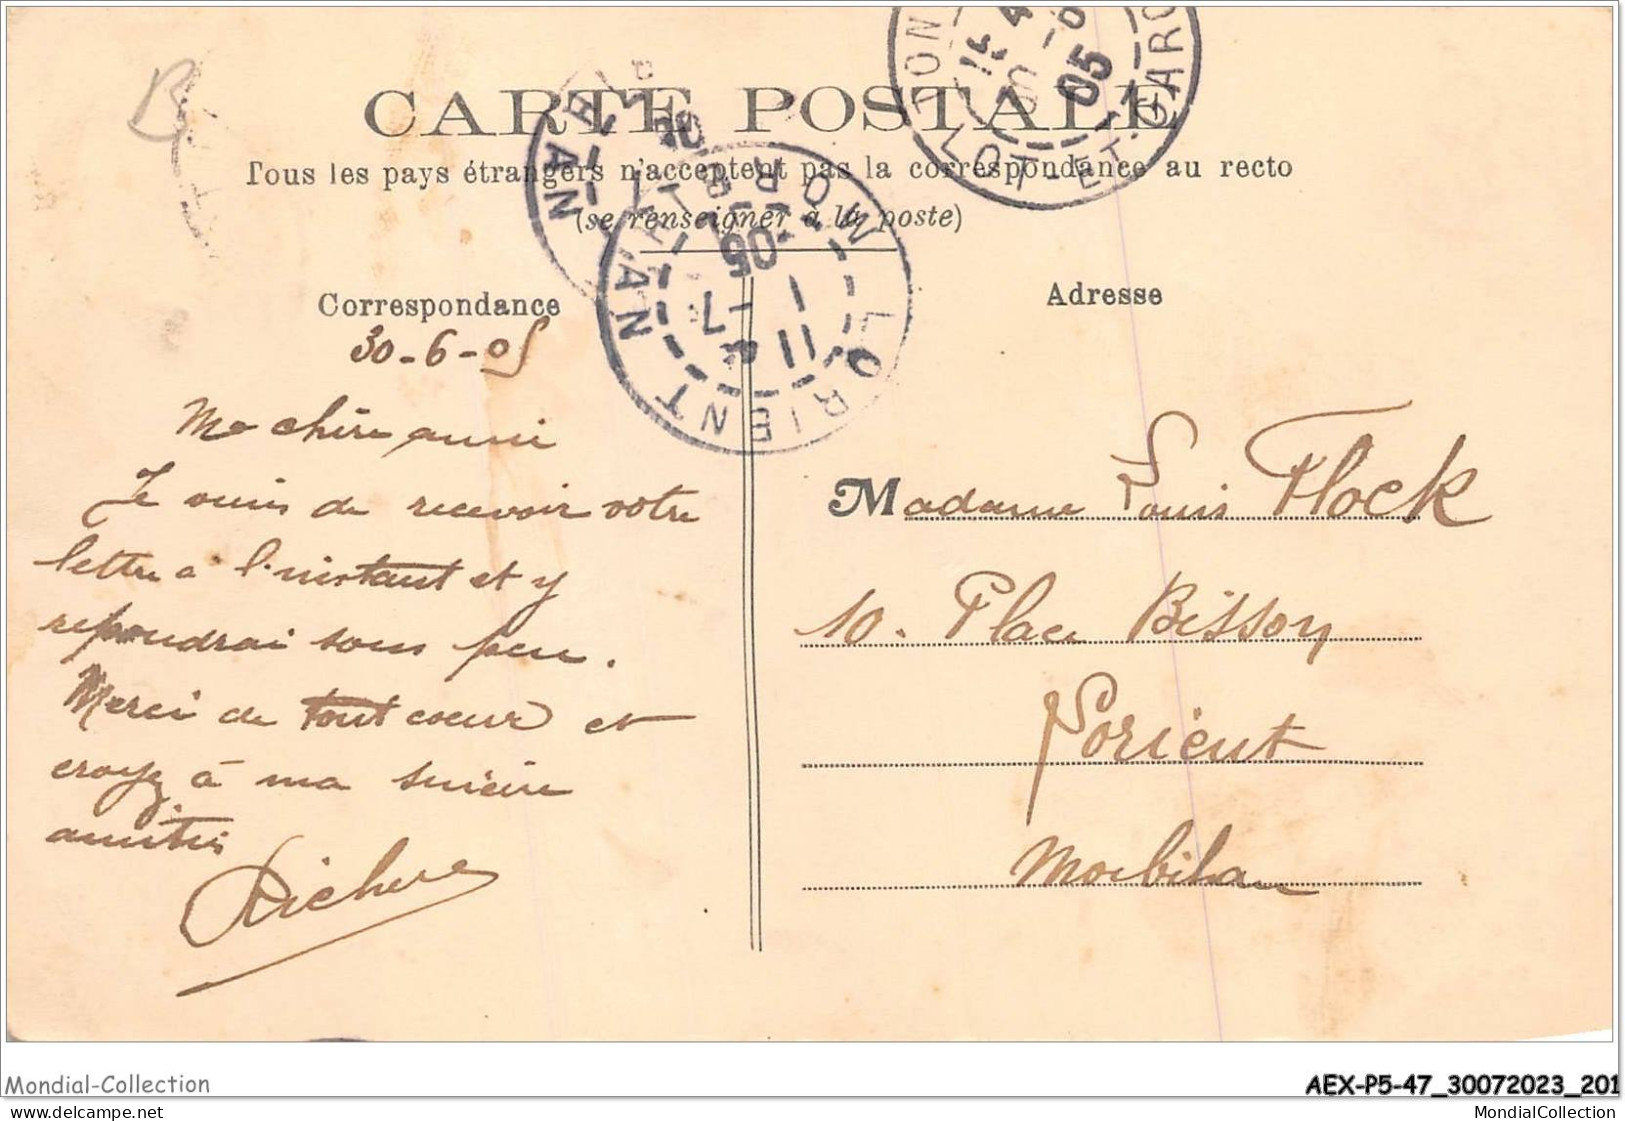 B
CARTE POSTALE
Tous les pays étrangers n'acceptent pas la correspondance au recto
(se renseigner à la poste)
LOT-ET-GARO
05
LORIENT
MORBIHAN
11
1-7
05
Correspondance
Adresse
30-6-05
Ma chère amie
Je viens de recevoir votre
lettre à l'instant et y
repondrai sous peu.
Merci de tout coeur et
croyez à ma sincère
amitié
Madame Louis Flock
10. Place Bisson
Lorient
Morbihan
Mondial-Collection
AEX-P5-47_30072023_201
www.delcampe.net
MondialCollection